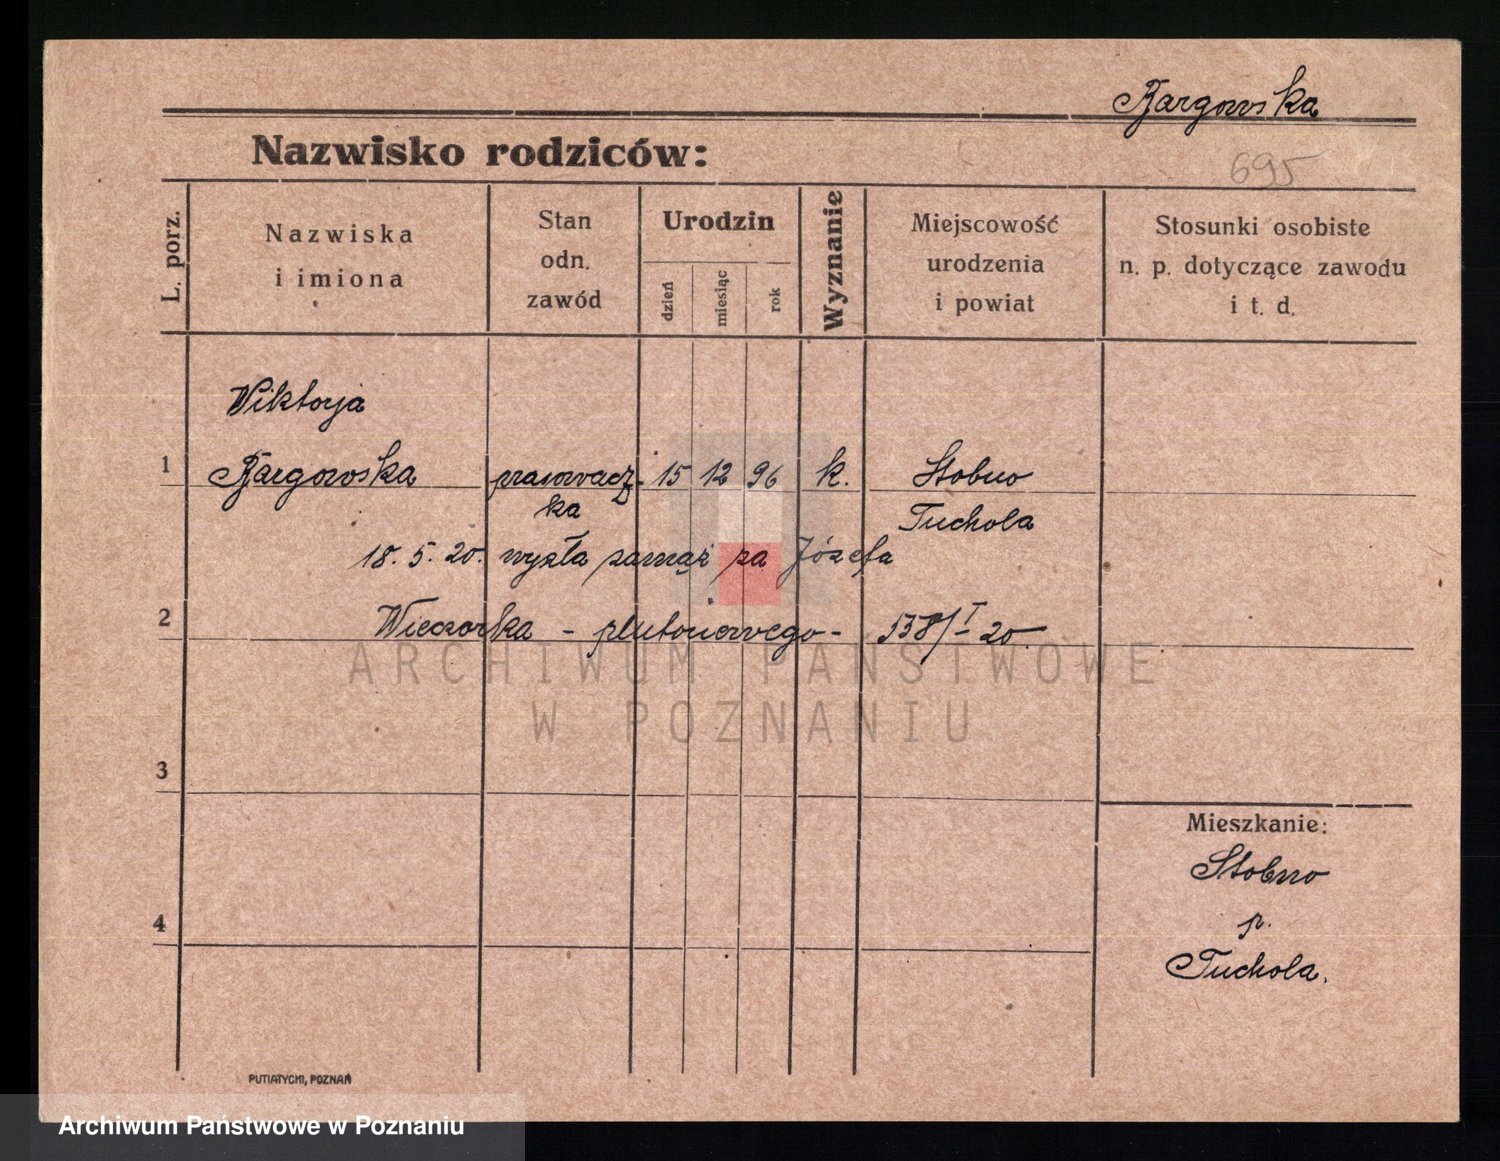 Bargowska
Nazwisko rodziców:
695
L. porz.
Nazwiska
i imiona
Stan
odn.
zawód
Urodzin
dzień
miesiąc
rok
Wyznanie
Miejscowość
urodzenia
i powiat
Stosunki osobiste
n. p. dotyczące zawodu
i t. d.
Wiktorja
1 Bargowska prasowacz- 15 12 96 k. Stobno
ka Tuchola
18. 5. 20. wyszła zamąż za Józefa
2 Wieczorka - plutonowego - 538/I 20.
ARCHIWUM PAŃSTWOWE
W POZNANIU
3
Mieszkanie:
Stobno
4 p.
Tuchola.
PUTIATYCKI, POZNAŃ
Archiwum Państwowe w Poznaniu